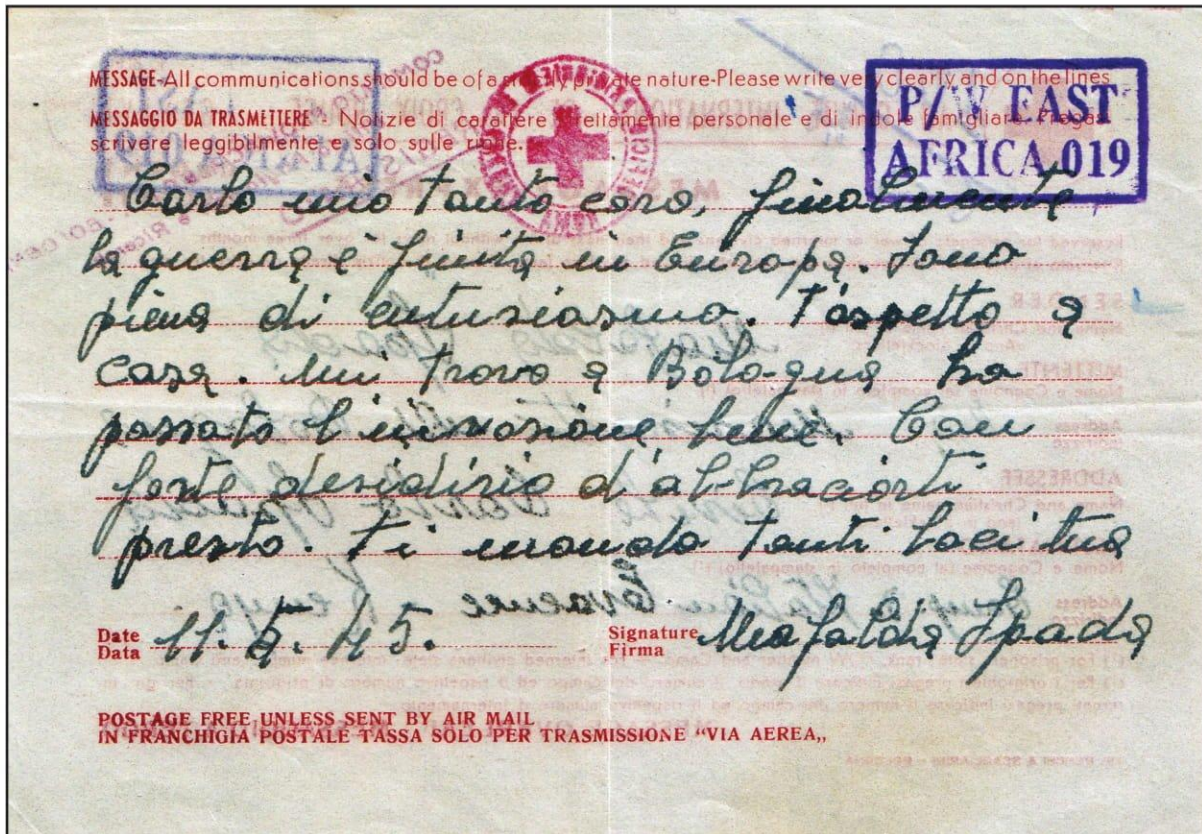 MESSAGE-All communications should be of a strictly private nature-Please write very clearly and on the lines
MESSAGGIO DA TRASMETTERE - Notizie di carattere strettamente personale e di indole famigliare. Pregasi
scrivere leggibilmente e solo sulle righe.
P/W EAST
AFRICA 019
Carlo mio tanto caro, finalmente
la guerra è finita in Europa. Sono
piena di entusiasmo. T'aspetto a
casa. Mi trovo a Bologna ho
passato l'invasione bene. Con
forte desidirio d'abbraciarti
presto. Ti mando tanti baci tua
Date
Data 11.5.45.
Signature
Firma Mafalda Spada
POSTAGE FREE UNLESS SENT BY AIR MAIL
IN FRANCHIGIA POSTALE TASSA SOLO PER TRASMISSIONE "VIA AEREA„